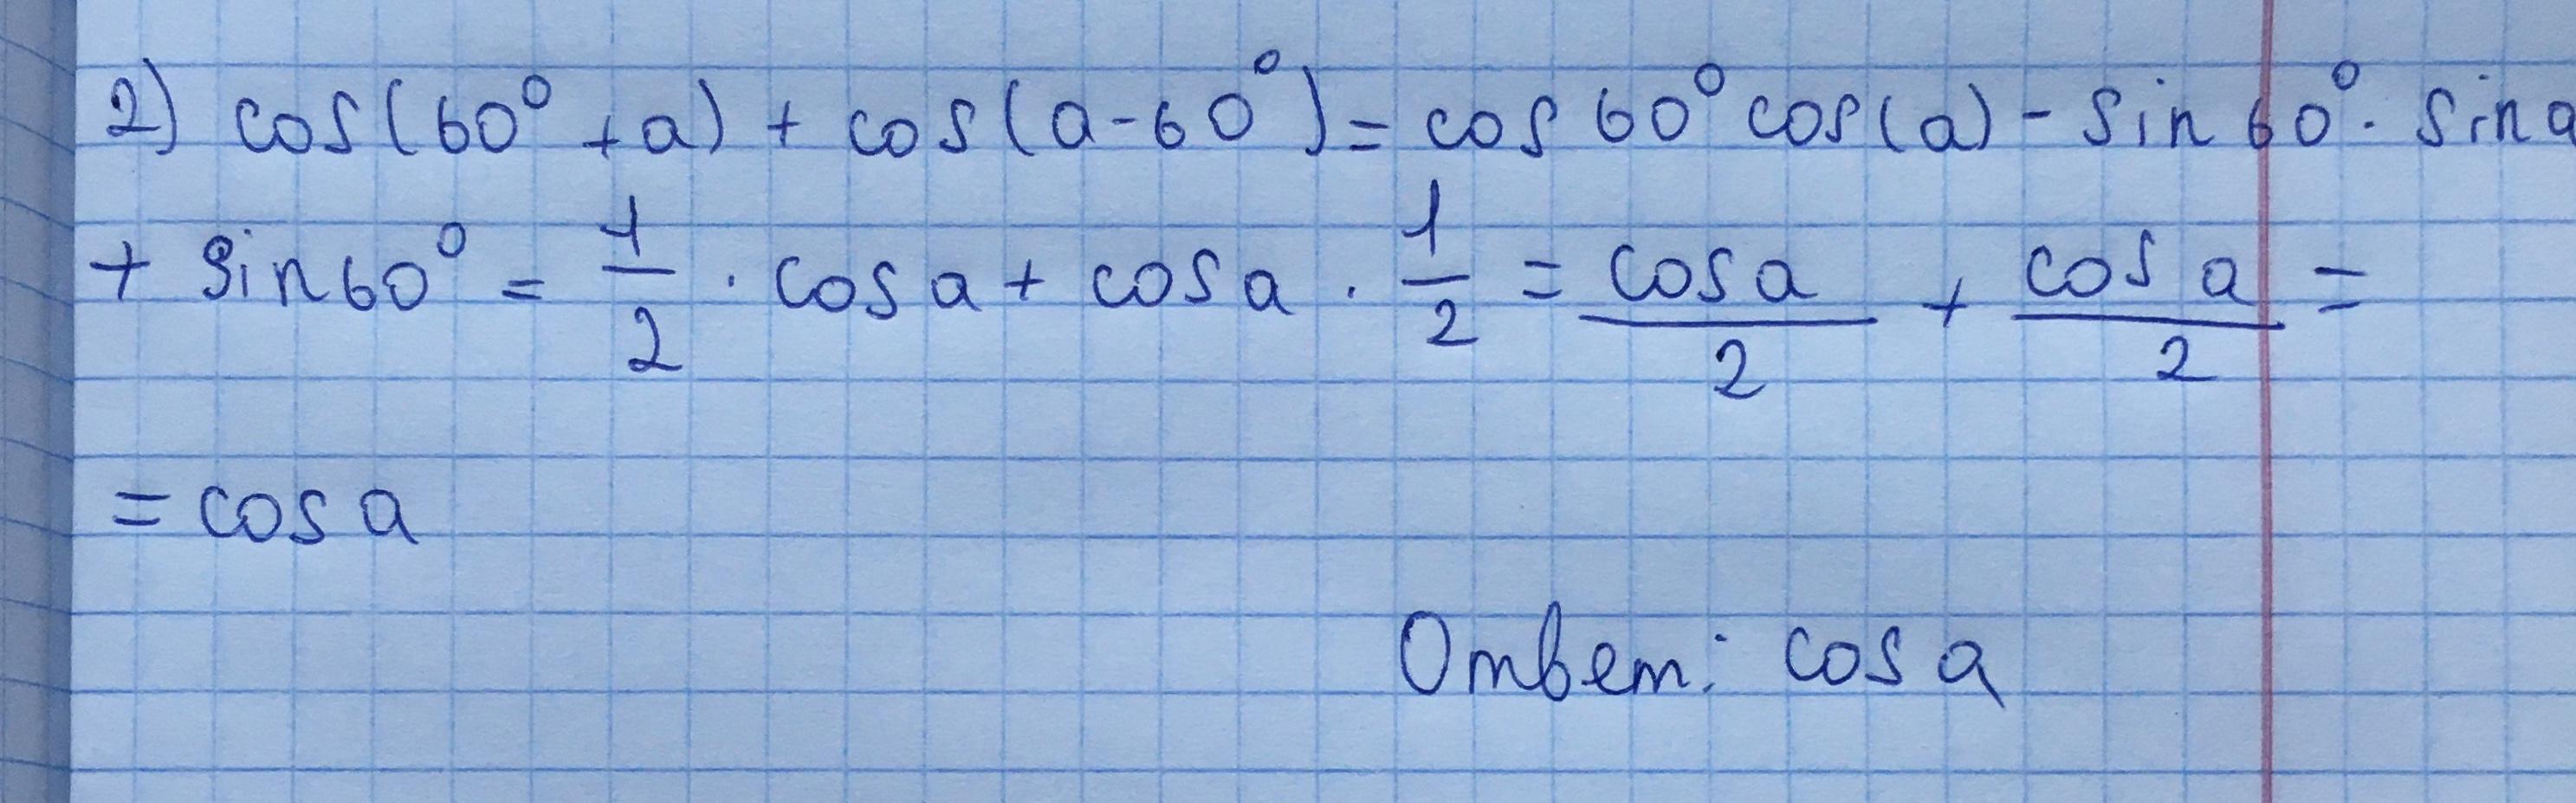 2) cos(60° + a) + cos(a - 60°) = cos 60° cos(a) - sin 60° · sin a
+ sin 60° = 1/2 · cos a + cos a · 1/2 = cos a/2 + cos a/2 =
= cos a
Ответ: cos a